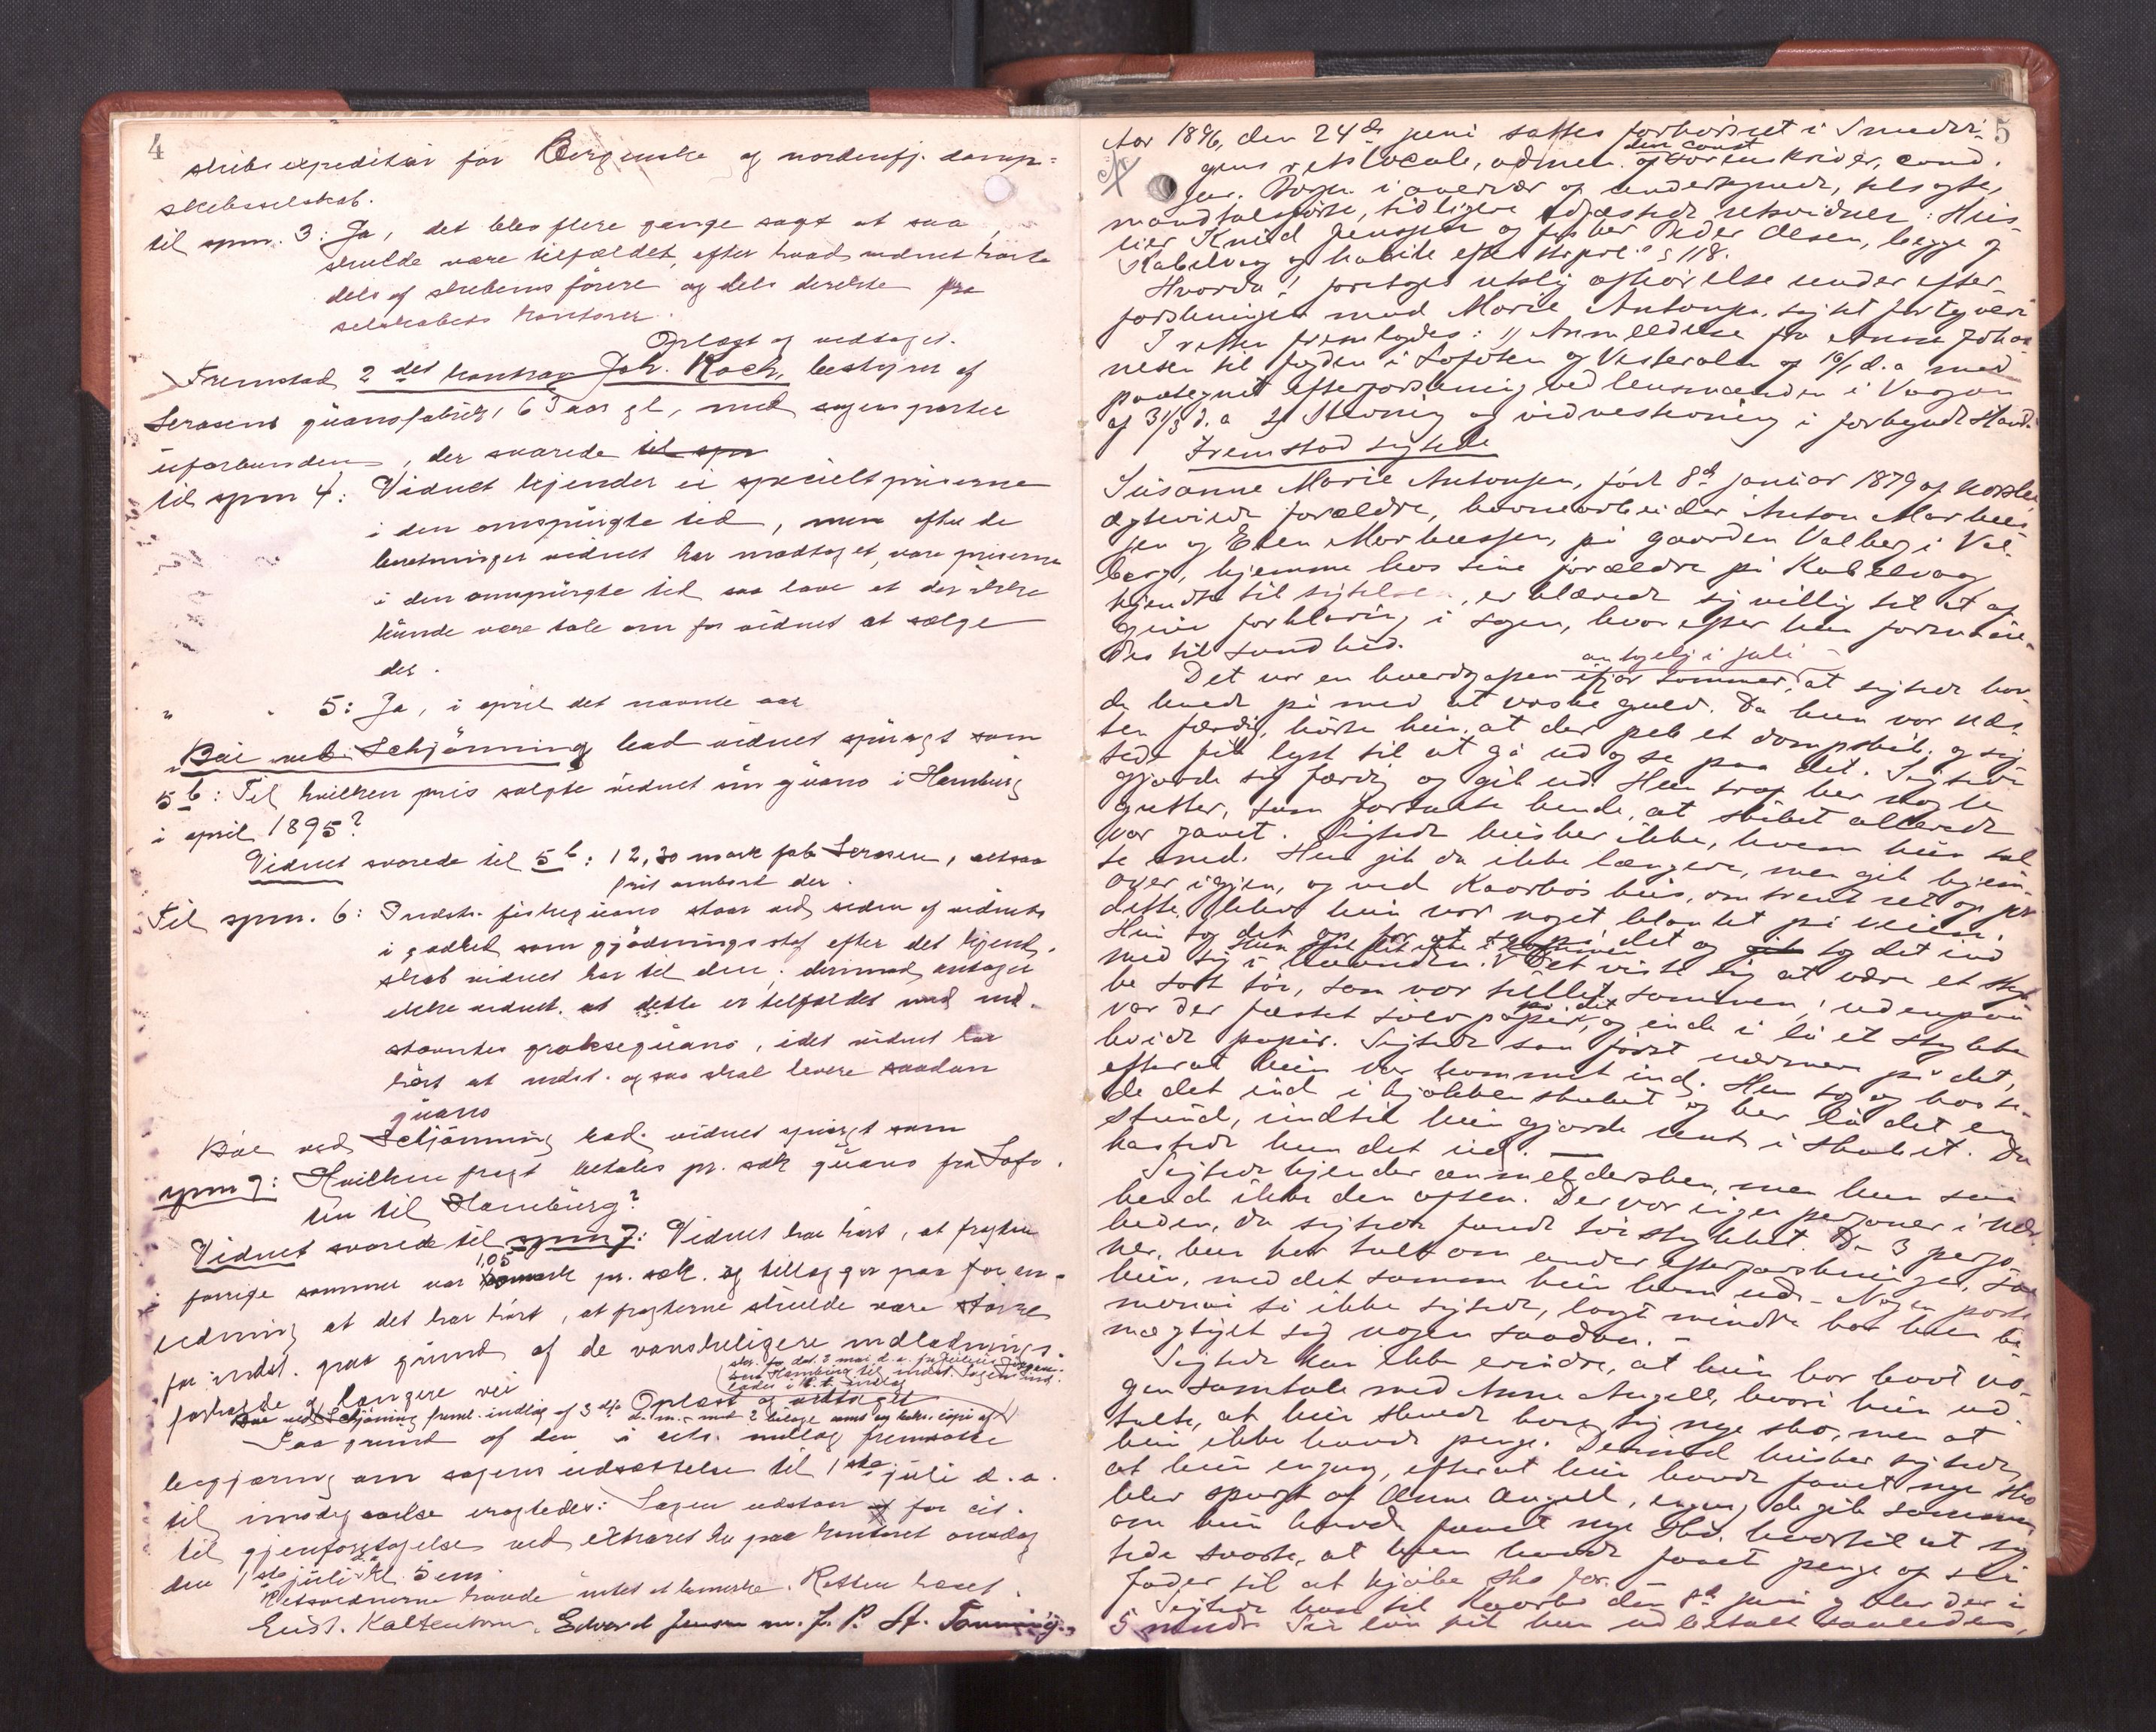 4
skibsexpeditør for Bergenske og nordenfj. damp=
skibsselskab.
til spm. 3: Ja, det blev flere gange sagt at saa
skulde være tilfældet, efter hvad vidnet hørte
dels af skibenes førere og dels direkte fra
selskabets kontorer.
Oplæst og vedtaget.
Fremstod 2det Joh. Koch, bestyrer af
guanofabrik, 63 aar gl., med sagens parter
uforbunden, der svarede til spm
til spm 4: Vidnet kjender ei specielt priserne
i den omspurgte tid, men efter de
beretninger vidnet har modtaget, var priserne
i den omspurgte tid saa lave at der ikke
kunde være tale om for vidnet at sælge
der.
" " 5: Ja, i april det nævnte aar
Bøe ved Schjønning bad vidnet spurgt som
5b: Til hvilken pris solgte vidnet sin guano i Hamburg
i april 1895?
Vidnet svarede til 5b: 12,30 mark fob , altsaa
frit ombord der.
Til spm. 6: Indst. fiskeguano staar ved siden af vidnets
i godhed som gjødningsstof efter det kjend-
skab vidnet har til den; derimod antager
ikke vidnet, at dette er tilfældet med ind-
stævntes grakseguano, idet vidnet har
hørt at indst. ogsaa skal levere saadan
guano
Bøe ved Schjønning bad vidnet spurgt som
spm 7: Hvilken fragt betales pr. sæk guano fra Lofo-
ten til Hamburg?
Vidnet svarede til spm 7: Vidnet har hørt, at fragten
1,05
forrige sommer var mark pr. sæk. og tillægger paa foran-
ledning at det har hørt, at fragterne skulde være større
for indst. paa grund af de vanskeligere indladnings-
forholde og længere vei
Oplæst og vedtaget
Bøe ved Schjønning freml. indlæg af 3 ds.
Paa grund af den i cits. indlæg fremsatte
begjæring om sagens udsættelse til 1ste juli d.a.
til imødegaaelse eragtedes: Sagen udstaar for cit.
til gjenforetagelse ved extraret her paa kontoret onsdag
den 1ste juli kl. 5 em.
Retsvidnerne havde intet at bemerke. Retten hævet.
Gust. Kaltenborn. Edvard Jensen m. f. P. St.
5
Aar 1896, den 24de juni sattes forhørsret i
den const
gens retslocale, adm. af sorenskriver, cand.
jur. i overvær af undertegnede, tilsagte,
mandtalsførte, tidligere edfæstede retsvidner: Hus-
eier Knud Jenssen og fisker Peder Olsen, begge af
Kabelvåg og habile efter strprl.s § 118.
Hvorda: foretoges retslig afhørelse under efter-
forskningen mod Marie Antonsen, sigtet for tyveri
I retten fremlagdes: 1) Anmeldelse fra Anne Johan-
nesen til fogden i Lofoten og Vesteraalen af 16/1 d.a med
paategnet efterforskning ved lensmanden i Vaagan
af 31/3 d.a 2) Stevning og vidnestevning i forbeg.
Fremstod sigtede
Susanne Marie Antonsen, født 8de januar 1879 af norske,
ægteviede forældre, havnearbeider Anton Markus-
sen og Ellen Markussen, på gaarden Valberg i Val-
berg, hjemme hos sine forældre på Kabelvaag
kjendt til sigtelsen, erklærede sig villig til at af-
give forklaring i sagen, hvorefter hun formane-
des til sandhed.
antagelig i juli
Det var en hverdagsaften ifjor sommer, at sigtede hav-
de med at vaske gulv. Da hun var næs-
ten færdig, hørte hun, at der peb et dampskib, og sig-
tede fik lyst til at gå ud og se paa det. Sigtede
gjorde sig færdig og gik ud. Hun traf her nogle
gutter, som fortalte hende, at skibet allerede
var gaaet. Sigtede husker ikke, hvem hun tal-
te med. Hun gik da ikke længere, men gik hjem-
over igjen, og ved Kaarbøs hus, omtrent ret op for
dette, blev hun var noget blankt på veien.
Hun tog det op for at se på det og gik tog det ind
med sig i haanden. Det viste sig at være et styk-
ke som var rullet sammen; udenpaa
var der fæstet sølvpapir, og inde i lå et stykke
hvidt papir. Sigtede saa først nærmere på det,
efterat hun var kommet ind. Hun tog og kaste-
de det ind i kjøkkenskabet og her lå det en
stund, indtil hun gjorde rent i skabet. Da
kastede hun det ud.
Sigtede kjender anmeldersken, men hun saa
hende ikke den aften. Der var ingen personer i nær-
heden, da sigtede fandt stykket. De 3 perso-
ner, hun har talt om under efterforskningen, saa
hun, med det samme hun kom ud. Nogen porte-
monnæ så ikke sigtede, langt mindre har hun be-
mægtiget sig nogen saadan.
Sigtede kan ikke erindre, at hun har havt no-
gen samtale med Anne Angell, hvori hun ud-
talte, at hun skulde have sig nye sko, men at
hun ikke havde penge. Derimod husker sigtede,
at hun engang, efterat hun havde faaet nye sko
blev spurgt af Anne Angell, engang de gik sammen
om hun havde faaet nye sko, hvortil at sig-
tede svarte, at hun havde faaet penge af sin
fader til at kjøbe sko for.
Sigtede kom til Kaarbø den 8de juni og blev der i
5 mndr. Sin løn fik hun udbetalt saaledes,